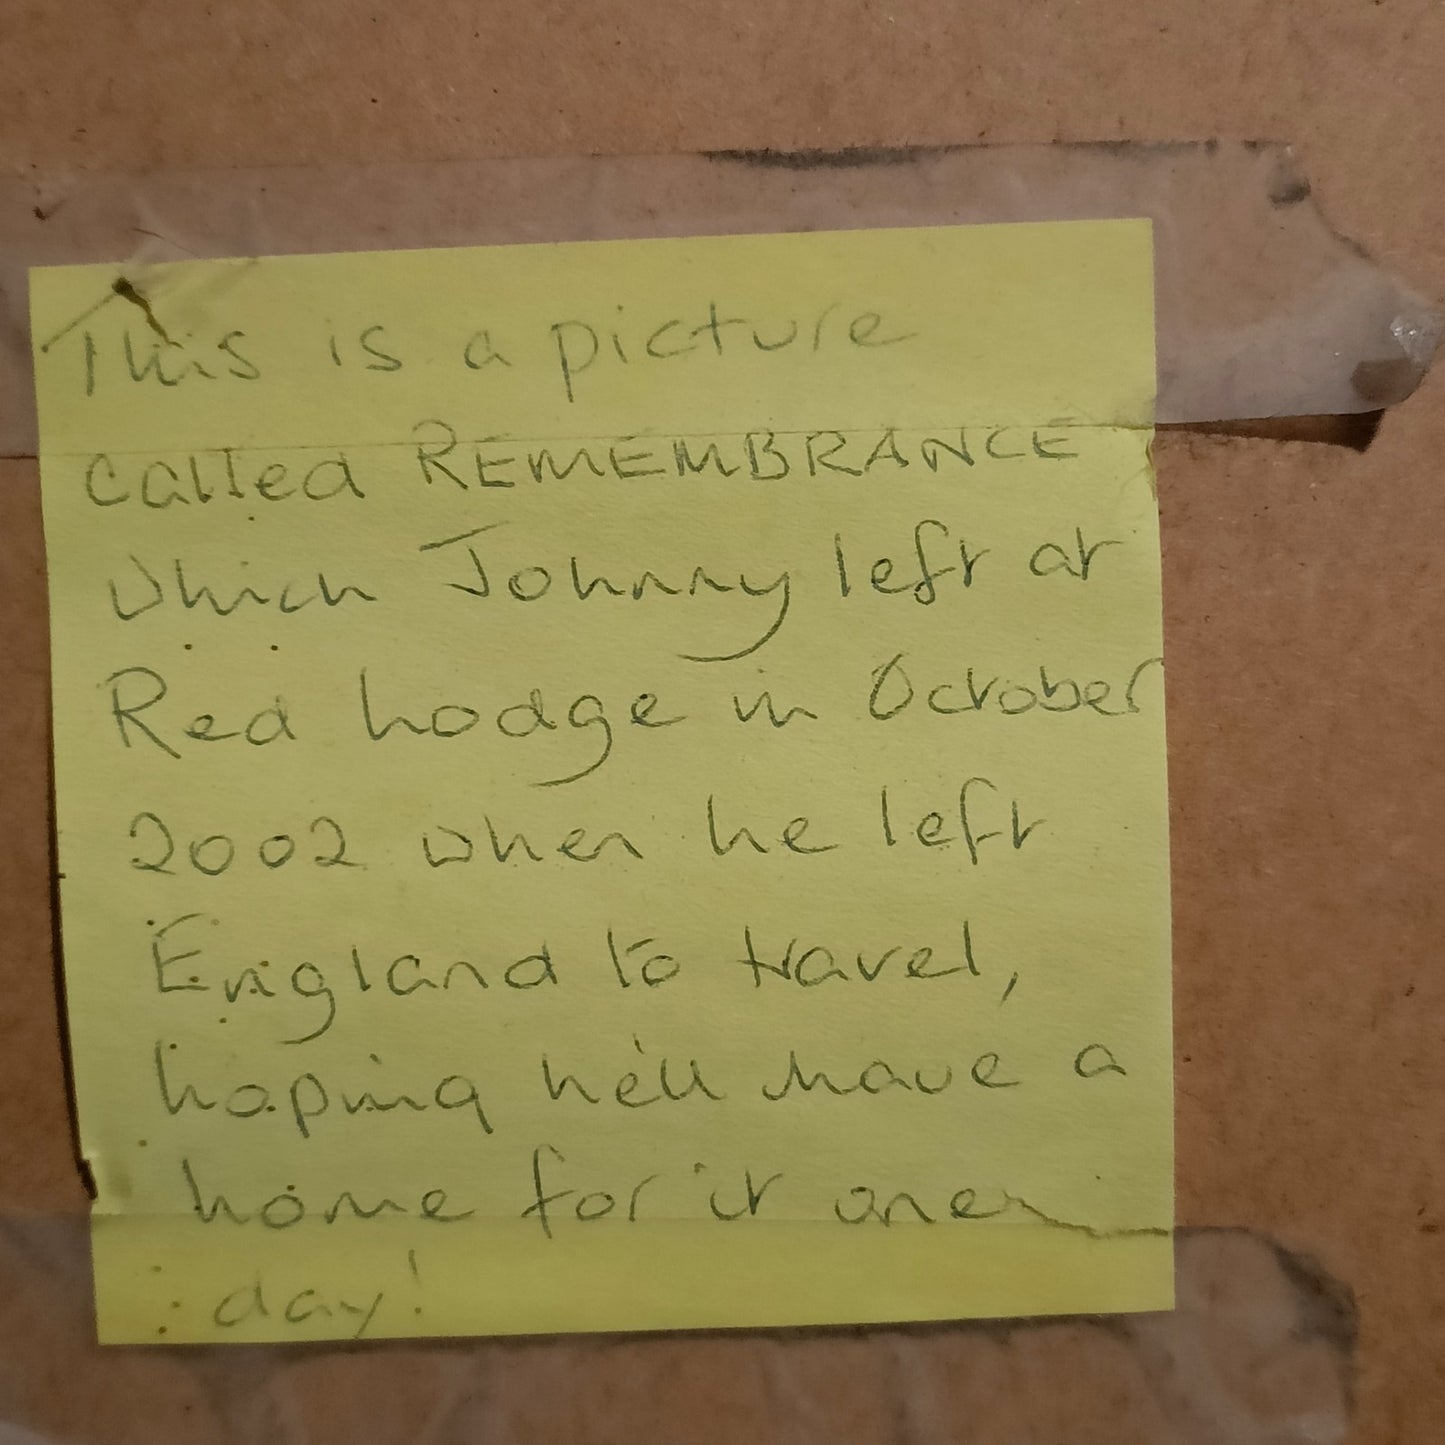 This is a picture
called REMEMBRANCE
which Johnny left at
Red hodge in October
2002 when he left
England to travel,
hoping he'll have a
home for it one
day!